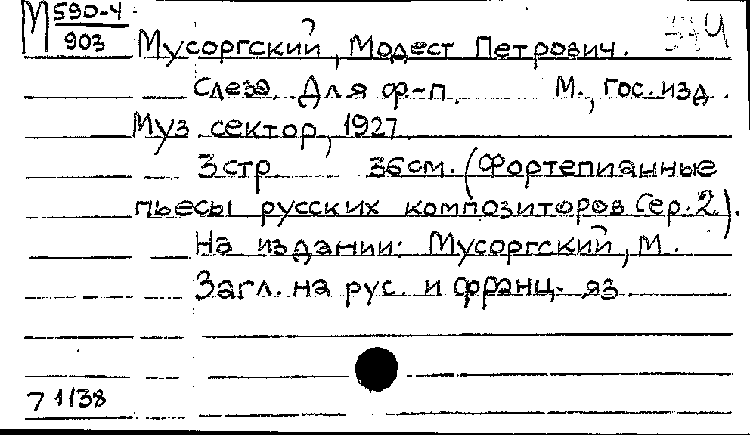 М 590-4
903
Мусоргский, Модест Петрович.
Слеза. Для ф-п. М., Гос. изд.
Муз. сектор, 1927
3 стр. 36 см. (Фортепианные
пьесы русских композиторов Сер. 2).
На издании: Мусоргский, М.
Загл. на рус. и франц. яз.
71/38